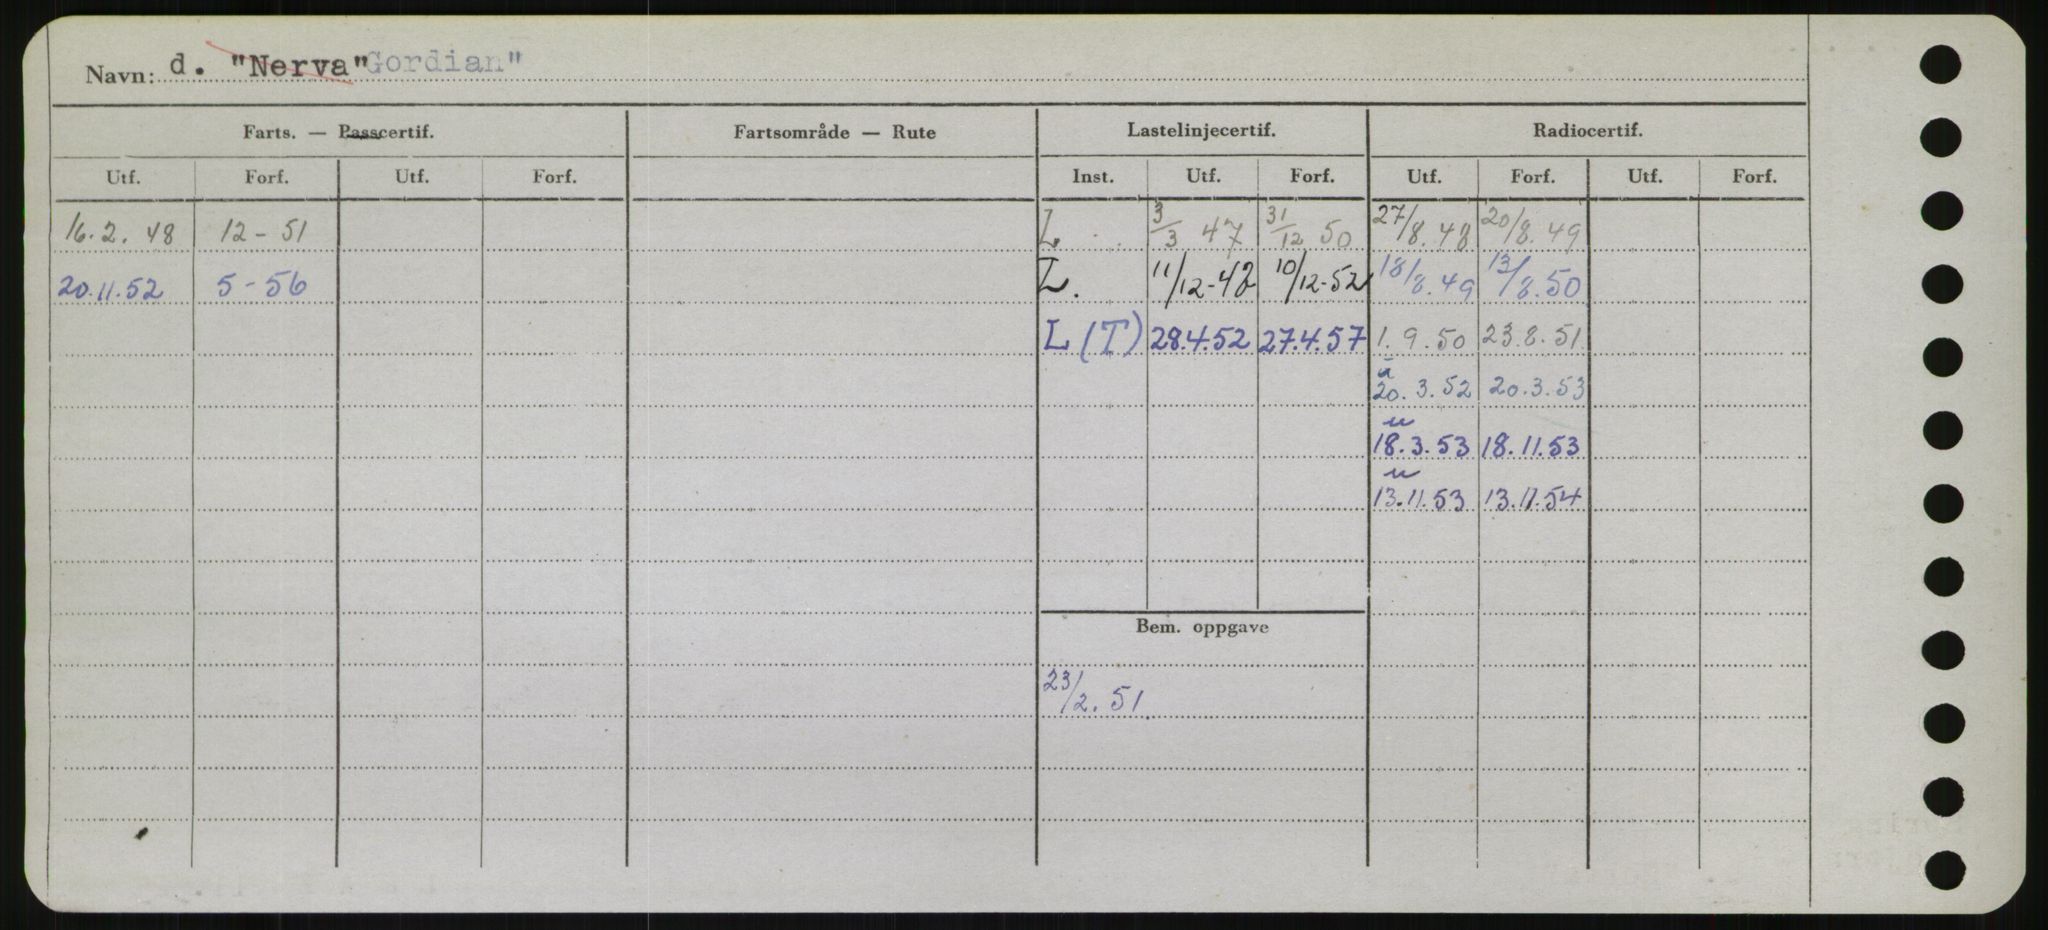 Navn: d. "Nerva" Gordian"
Farts. — Passcertif. Fartsområde — Rute Lastelinjecertif. Radiocertif.
Utf. Forf. Utf. Forf. Inst. Utf. Forf. Utf. Forf. Utf. Forf.
16.2.48 12-51 L. 3/3 47 31/12 50 27/8.48 20/8.49
20.11.52 5-56 L. 11/12-48 10/12-52 18/8.49 13/8.50
L (T) 28.4.52 27.4.57 1.9.50 23.8.51
20.3.52 20.3.53
u
18.3.53 18.11.53
u
13.11.53 13.11.54
Bem. oppgave
23/2.51